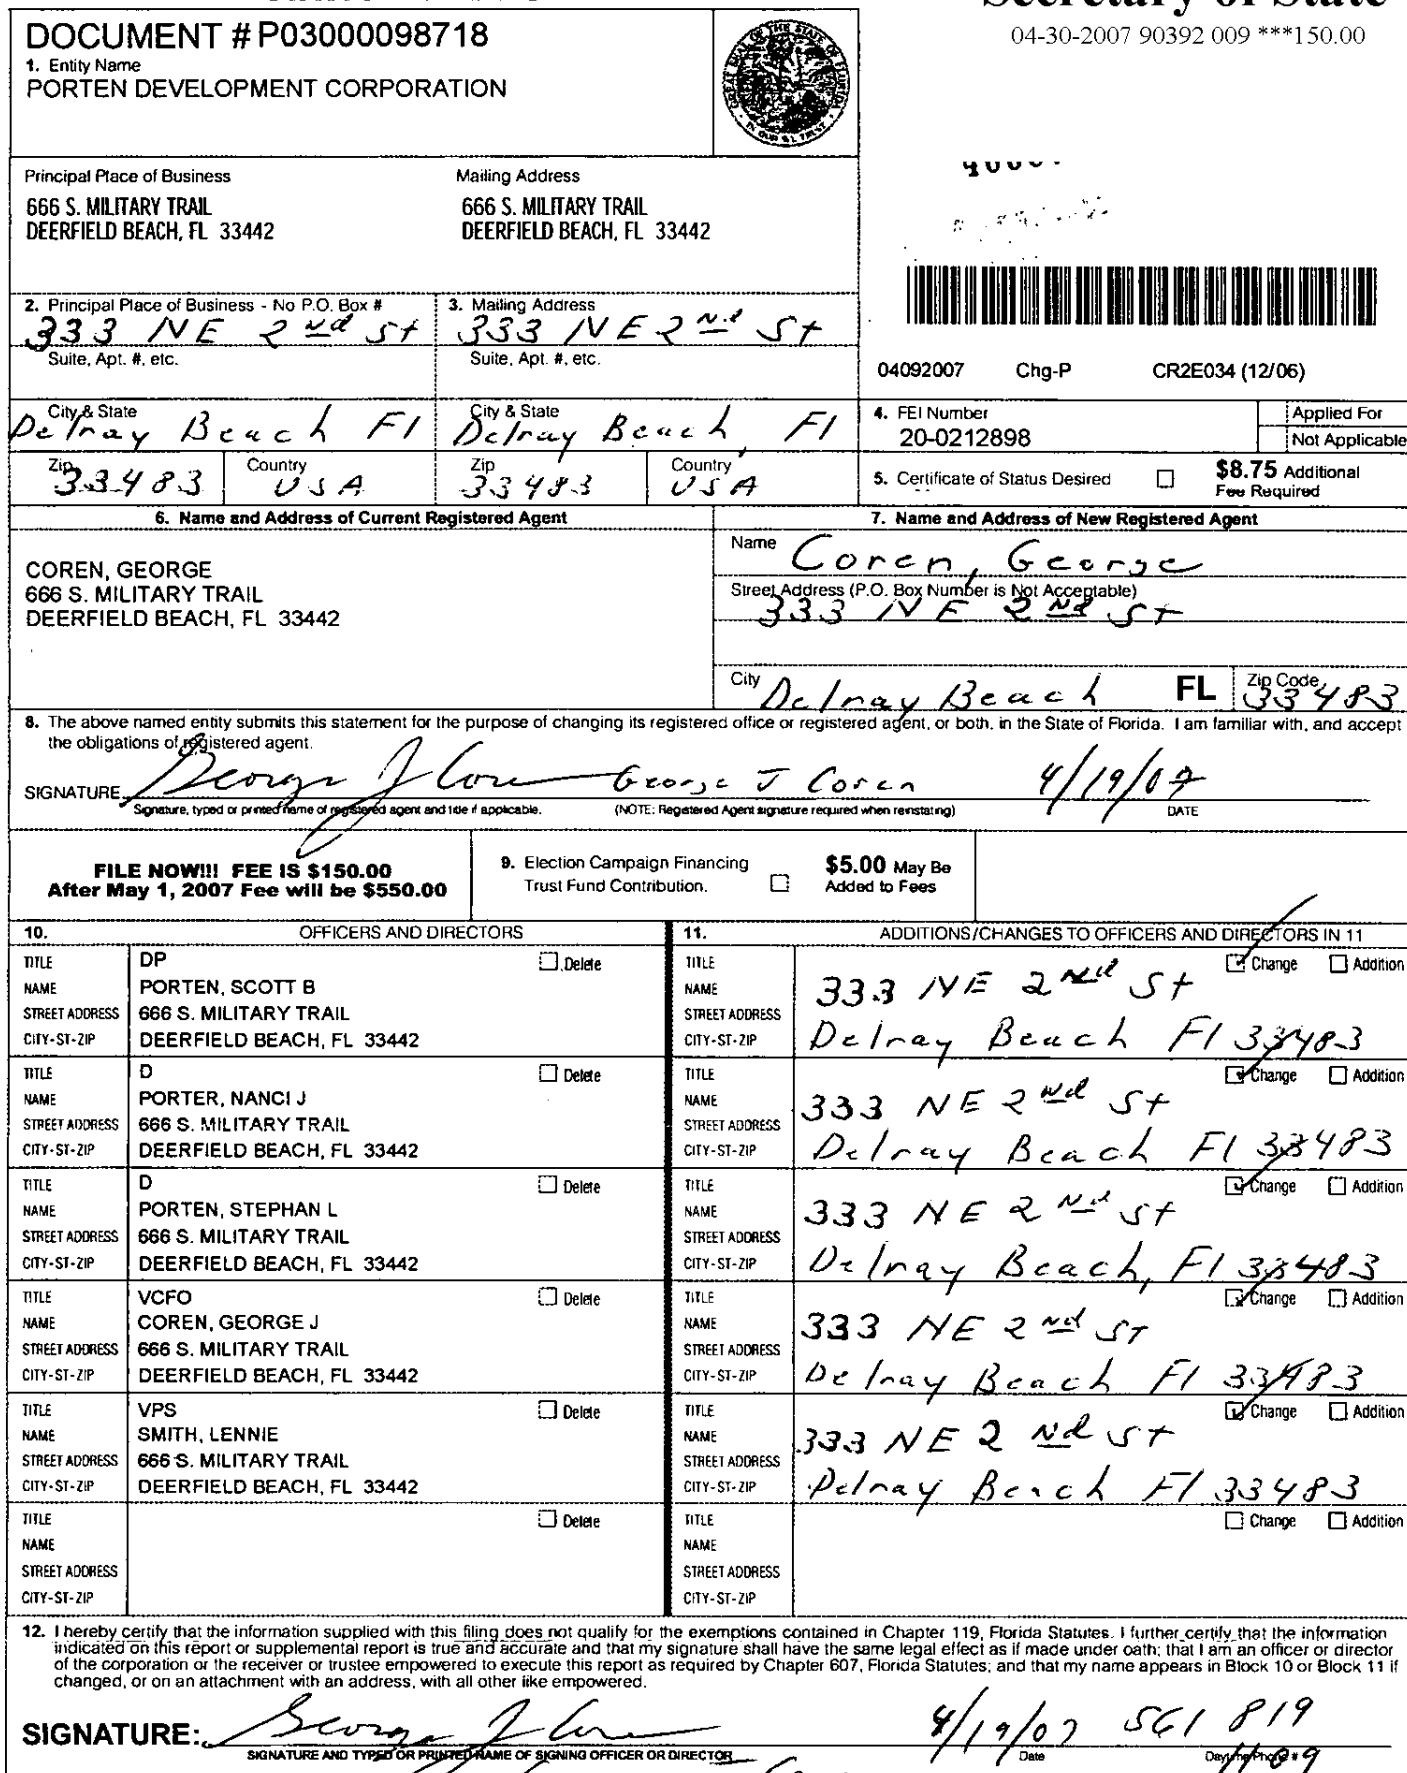 Secretary of State
04-30-2007 90392 009 ***150.00
DOCUMENT # P03000098718
1. Entity Name
PORTEN DEVELOPMENT CORPORATION
Principal Place of Business
666 S. MILITARY TRAIL
DEERFIELD BEACH, FL 33442
Mailing Address
666 S. MILITARY TRAIL
DEERFIELD BEACH, FL 33442
2. Principal Place of Business - No P.O. Box #
333 NE 2nd St
Suite, Apt. #, etc.
City & State
Delray Beach Fl
Zip
33483
Country
USA
3. Mailing Address
333 NE 2nd St
Suite, Apt. #, etc.
City & State
Delray Beach, Fl
Zip
33483
Country
USA
04092007 Chg-P CR2E034 (12/06)
4. FEI Number
20-0212898
Applied For
Not Applicable
5. Certificate of Status Desired
$8.75 Additional
Fee Required
6. Name and Address of Current Registered Agent
COREN, GEORGE
666 S. MILITARY TRAIL
DEERFIELD BEACH, FL 33442
7. Name and Address of New Registered Agent
Name Coren, George
Street Address (P.O. Box Number is Not Acceptable)
333 NE 2nd St
City Delray Beach FL Zip Code 33483
8. The above named entity submits this statement for the purpose of changing its registered office or registered agent, or both, in the State of Florida. I am familiar with, and accept
the obligations of registered agent.
SIGNATURE George J Coren George J Coren 4/19/07
Signature, typed or printed name of registered agent and title if applicable. (NOTE: Registered Agent signature required when reinstating) DATE
FILE NOW!!! FEE IS $150.00
After May 1, 2007 Fee will be $550.00
9. Election Campaign Financing
Trust Fund Contribution.
$5.00 May Be
Added to Fees
10. OFFICERS AND DIRECTORS
11. ADDITIONS/CHANGES TO OFFICERS AND DIRECTORS IN 11
TITLE DP Delete
NAME PORTEN, SCOTT B
STREET ADDRESS 666 S. MILITARY TRAIL
CITY-ST-ZIP DEERFIELD BEACH, FL 33442
TITLE Change Addition
NAME 333 NE 2nd St
STREET ADDRESS
CITY-ST-ZIP Delray Beach Fl 33483
TITLE D Delete
NAME PORTER, NANCI J
STREET ADDRESS 666 S. MILITARY TRAIL
CITY-ST-ZIP DEERFIELD BEACH, FL 33442
TITLE Change Addition
NAME 333 NE 2nd St
STREET ADDRESS
CITY-ST-ZIP Delray Beach Fl 33483
TITLE D Delete
NAME PORTEN, STEPHAN L
STREET ADDRESS 666 S. MILITARY TRAIL
CITY-ST-ZIP DEERFIELD BEACH, FL 33442
TITLE Change Addition
NAME 333 NE 2nd St
STREET ADDRESS
CITY-ST-ZIP Delray Beach, Fl 33483
TITLE VCFO Delete
NAME COREN, GEORGE J
STREET ADDRESS 666 S. MILITARY TRAIL
CITY-ST-ZIP DEERFIELD BEACH, FL 33442
TITLE Change Addition
NAME 333 NE 2nd ST
STREET ADDRESS
CITY-ST-ZIP Delray Beach Fl 33483
TITLE VPS Delete
NAME SMITH, LENNIE
STREET ADDRESS 666 S. MILITARY TRAIL
CITY-ST-ZIP DEERFIELD BEACH, FL 33442
TITLE Change Addition
NAME 333 NE 2nd St
STREET ADDRESS
CITY-ST-ZIP Delray Beach Fl 33483
TITLE Delete
NAME
STREET ADDRESS
CITY-ST-ZIP
TITLE Change Addition
NAME
STREET ADDRESS
CITY-ST-ZIP
12. I hereby certify that the information supplied with this filing does not qualify for the exemptions contained in Chapter 119, Florida Statutes. I further certify that the information
indicated on this report or supplemental report is true and accurate and that my signature shall have the same legal effect as if made under oath; that I am an officer or director
of the corporation or the receiver or trustee empowered to execute this report as required by Chapter 607, Florida Statutes; and that my name appears in Block 10 or Block 11 if
changed, or on an attachment with an address, with all other like empowered.
SIGNATURE: George J Coren 4/19/07 561 819
SIGNATURE AND TYPED OR PRINTED NAME OF SIGNING OFFICER OR DIRECTOR Date Daytime Phone #